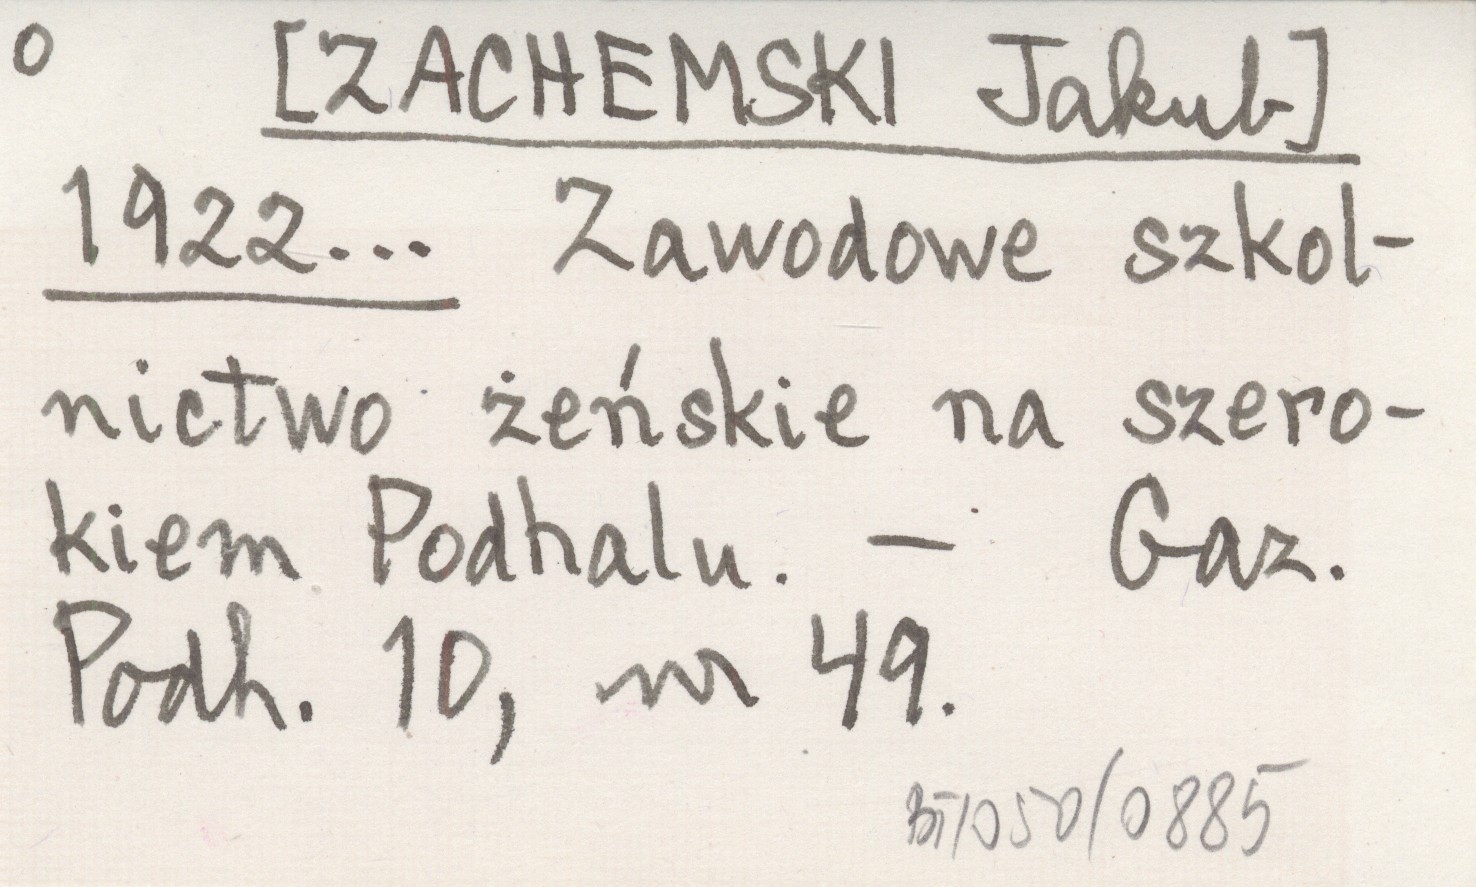 o [ZACHEMSKI Jakub]
1922... Zawodowe szkol-
nictwo żeńskie na szero-
kiem Podhalu. - Gaz.
Podh. 10, nr 49.
BT/050/0885